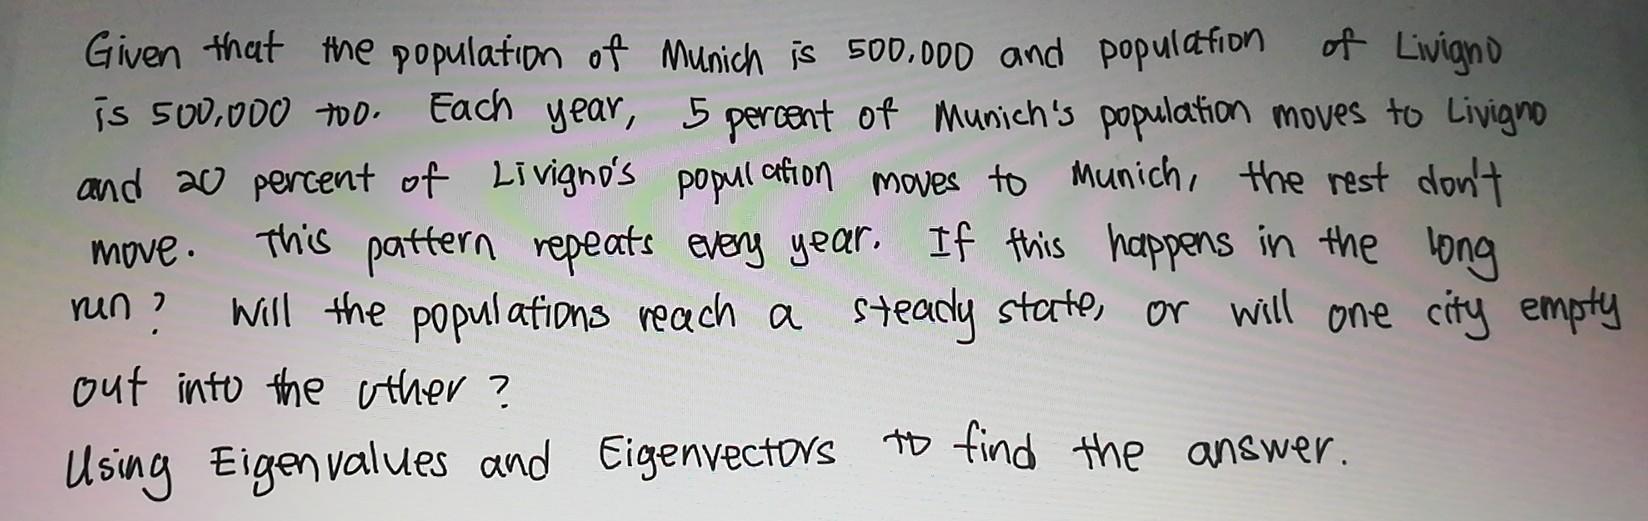 Given that the population of Munich is 500,000 and population of Livigno
is 500,000 too. Each year, 5 percent of Munich's population moves to Livigno
and 20 percent of Livigno's population moves to Munich, the rest don't
move. This pattern repeats every year. If this happens in the long
run? Will the populations reach a steady state, or will one city empty
out into the other?
Using Eigenvalues and Eigenvectors to find the answer.